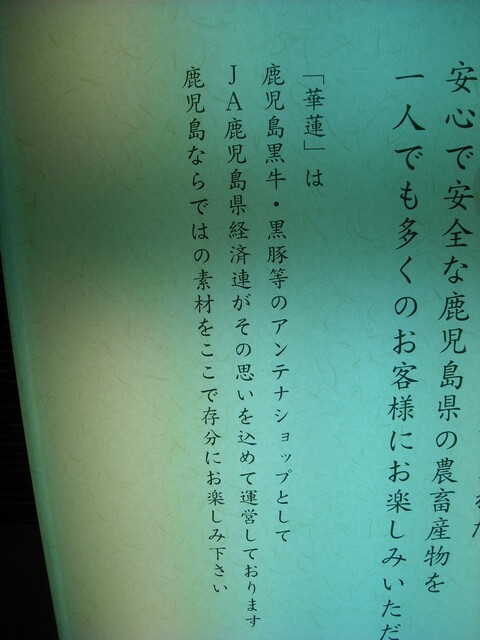 安心で安全な鹿児島県の農畜産物を
一人でも多くのお客様にお楽しみいただ
「華蓮」は
鹿児島黒牛・黒豚等のアンテナショップとして
JA鹿児島県経済連がその思いを込めて運営しております
鹿児島ならではの素材をここで存分にお楽しみ下さい